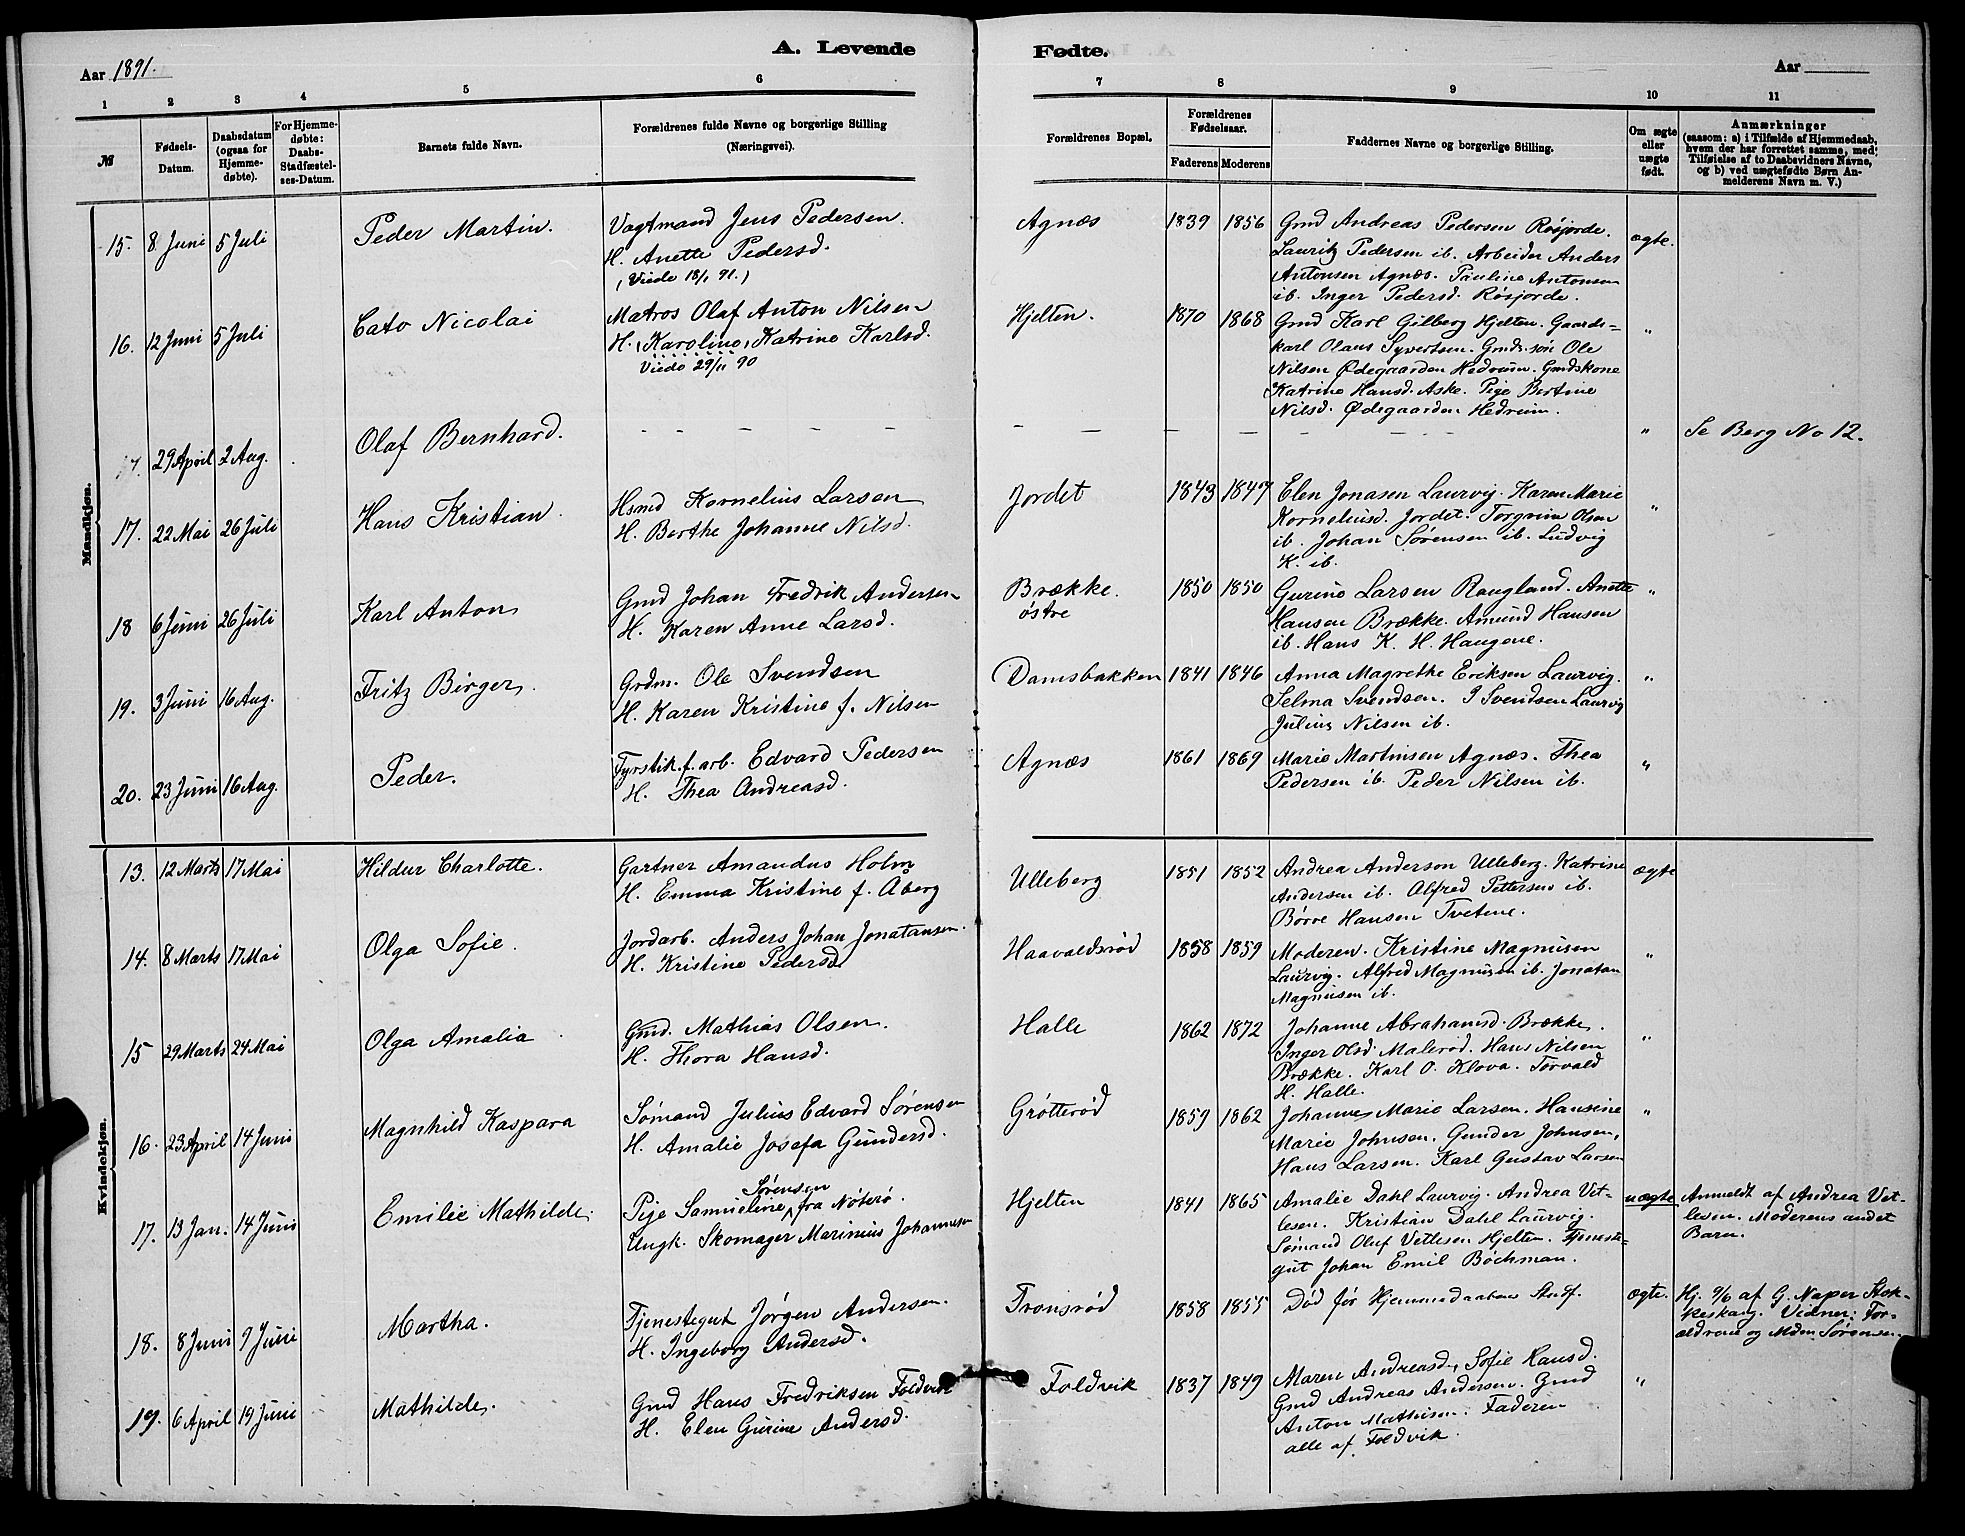 A. Levende
Fødte.
Aar 1891.
Aar
1 2 3 4 5 6 7 8 9 10 11
№
Fødsels-
Datum.
Daabsdatum
(ogsaa for
Hjemme-
døbte).
For Hjemme-
døbte:
Daabs-
Stadfæstel-
ses-Datum.
Barnets fulde Navn.
Forældrenes fulde Navne og borgerlige Stilling
(Næringsvei).
Forældrenes Bopæl.
Forældrenes
Fødselsaar.
Faderens
Moderens
Faddernes Navne og borgerlige Stilling.
Om ægte
eller
uægte
født.
Anmærkninger
(saasom: a) i Tilfælde af Hjemmedaab,
hvem der har forrettet samme, med
Tilføielse af to Daabsvidners Navne,
og b) ved uægtefødte Børn An-
melderens Navn m. V.)
Mandkjøn.
15. 8 Juni 5 Juli
Peder Martin.
Vagtmand Jens Pedersen.
H. Anette Pedersd.
(Viede 18/1 91.)
Agnæs
1839 1856
Gmd Andreas Pedersen Røsjorde.
Lauritz Pedersen ib. Arbeider Anders
Antonsen Agnæs. Pauline Antonsen
ib. Inger Pedersd. Røsjorde.
ægte.
16. 12 Juni 5 Juli
Cato Nicolai
Matros Olaf Anton Nilsen
H. (Karoline) Katrine Karlsd.
Viede 29/11 90
Hjelten.
1870 1868
Gmd Karl Gilberg Hjelten. Gaards-
karl Olaus Syvertsen. Gmds. søn Ole
Nilsen Ødegaarden Hedrum. Gmdskone
Katrine Hansd. Aske. Pige Bertine
Nilsd. Ødegaarden Hedrum.
"
17. 29 April 2 Aug.
Olaf Bernhard.
- - - - - -
"
Se Berg No 12.
17. 22 Mai 26 Juli
Hans Kristian.
Hsmd Kornelius Larsen
H. Berthe Johanne Nilsd.
Jordet
1843 1847
Elen Jonasen Laurvig. Karen Marie
Korneliusd. Jordet. Torgrim Olsen
ib. Johan Sørensen ib. Ludvig
K. ib.
"
18 6 Juni 26 Juli
Karl Anton
Gmd Johan Fredrik Andersen
H. Karen Anne Larsd.
Brække.
østre
1850 1850
Gurine Larsen Raugland. Anette
Hansen Brække. Amund Hansen
ib. Hans K. H. Haugene.
"
19. 3 Juni 16 Aug.
Fritz Birger.
Grdm. Ole Svendsen
H. Karen Kristine f. Nilsen
Damsbakken
1841 1846
Anna Magrethe Eriksen Laurvig.
Selma Svendsen. I Svendsen Laurvig
Julius Nilsen ib.
"
20. 23 Juni 16 Aug.
Peder.
Fyrstik.f.arb. Edvard Pedersen
H. Thea Andreasd.
Agnæs
1861 1869
Marie Martinsen Agnæs. Thea
Pedersen ib. Peder Nilsen ib.
"
Kvindekjøn.
13. 12 Marts 17 Mai
Hildur Charlotte.
Gartner Amandus Holm
H. Emma Kristine f. Åberg
Ulleberg
1851 1852
Andrea Anderson Ulleberg. Katrine
Andersen ib. Alfred Pettersen ib.
Børre Hansen Tvetene.
ægte
14. 8 Marts 17 Mai
Olga Sofie.
Jordarb. Anders Johan Jonatansen.
H. Kristine Pedersd
Haavaldsrød
1858 1859
Moderen. Kristine Magnusen
Laurvig. Alfred Magnusen ib. Jonatan
Magnusen ib.
"
15 29 Marts 24 Mai
Olga Amalia
Gmd. Mathias Olsen.
H. Thora Hansd.
Halle
1862 1872
Johanne Abrahamsd. Brække.
Inger Olsd. Malerød. Hans Nilsen
Brække. Karl O. Klova. Torvald
H. Halle.
"
16. 23 April 14 Juni
Magnhild Kaspara
Sømand Julius Edvard Sørensen
H. Amalie Josefa Gundersd.
Grøtterød
1859 1862
Johanne Marie Larsen. Hansine
Marie Johnsen. Gunder Johnsen,
Hans Larsen. Karl Gustav Larsen
"
17. 13 Jan. 14 Juni
Emilie Mathilde.
Pige Samueline Sørensen fra Nøterø.
Ungk. Skomager Marinius Johannesen
Hjelten
1841 1865
Amalie Dahl Laurvig. Andrea Vet-
lesen. Kristian Dahl Laurvig.
Sømand Oluf Vetlesen Hjelten. Tjeneste-
gut Johan Emil Bøchman.
uægte
Anmeldt af Andrea Vet-
lesen. Moderens andet
Barn.
18. 8 Juni 9 Juni
Martha.
Tjenestegut Jørgen Andersen.
H. Ingeborg Andersd.
Tronsrød
1858 1855
Død før Hjemmedaabens Stadf.
ægte.
Hj. 9/6 af G. Naper Stok-
keskarg. Vidner: For-
ældrene og Mdm Sørensen.
19. 6 April 19 Juni
Mathilde.
Gmd Hans Fredriksen Foldvik
H. Elen Gurine Andersd.
Foldvik
1837 1849
Maren Andreasd, Sofie Hansd.
Gmd Andreas Andersen. Gmd
Anton Mathisen. Faderen
alle af Foldvik.
"